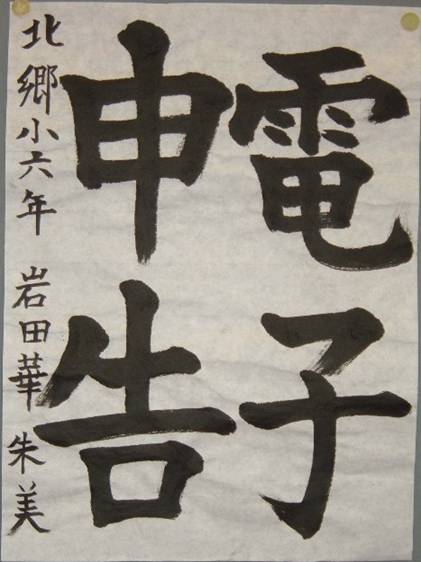 電子
申告
北郷小六年 岩田華朱美